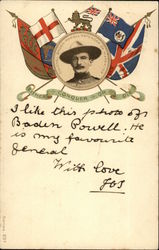 CONQUER OR DIE
I like this photo of
Baden Powell. He
is my favourite
General
With love